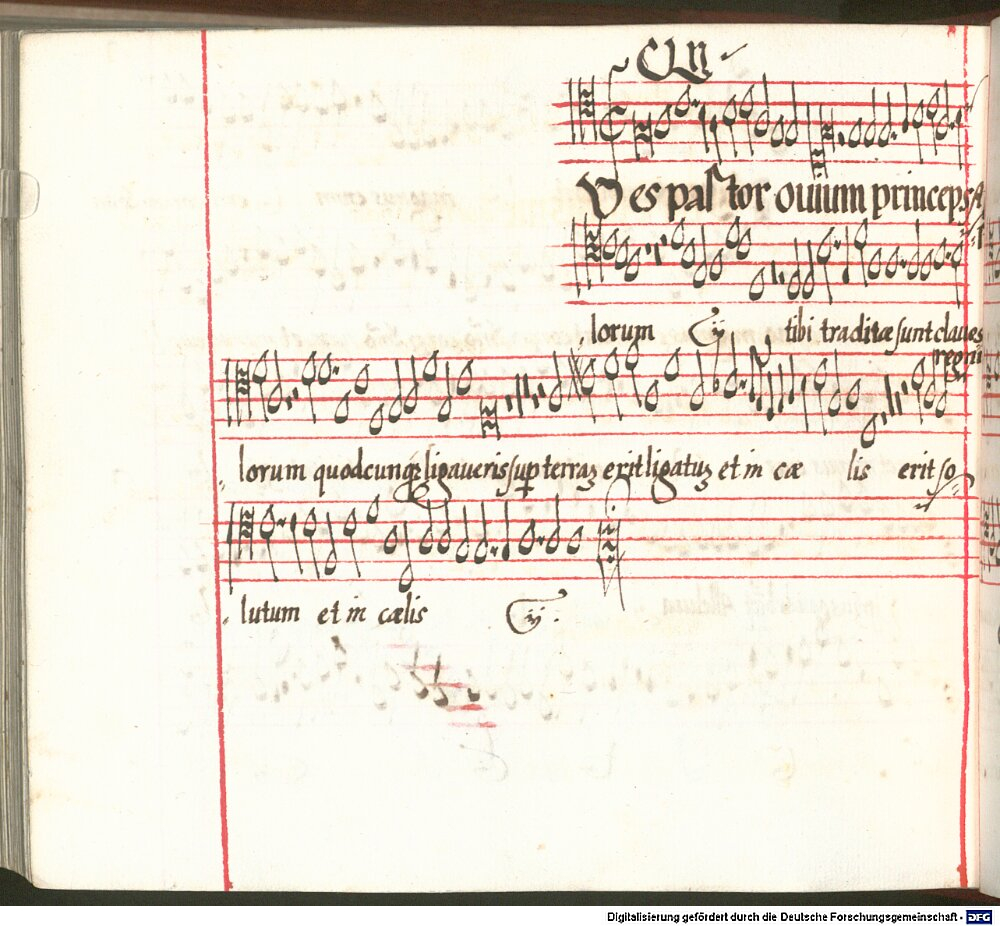 Ves pastor ouium princeps A
lorum ij tibi traditæ sunt claues
regni
lorum quodcunqꝫ ligaueris sup terraꝫ erit ligatuꝫ et in cæ lis erit so
lutum et in cælis ij.
Digitalisierung gefördert durch die Deutsche Forschungsgemeinschaft - DFG